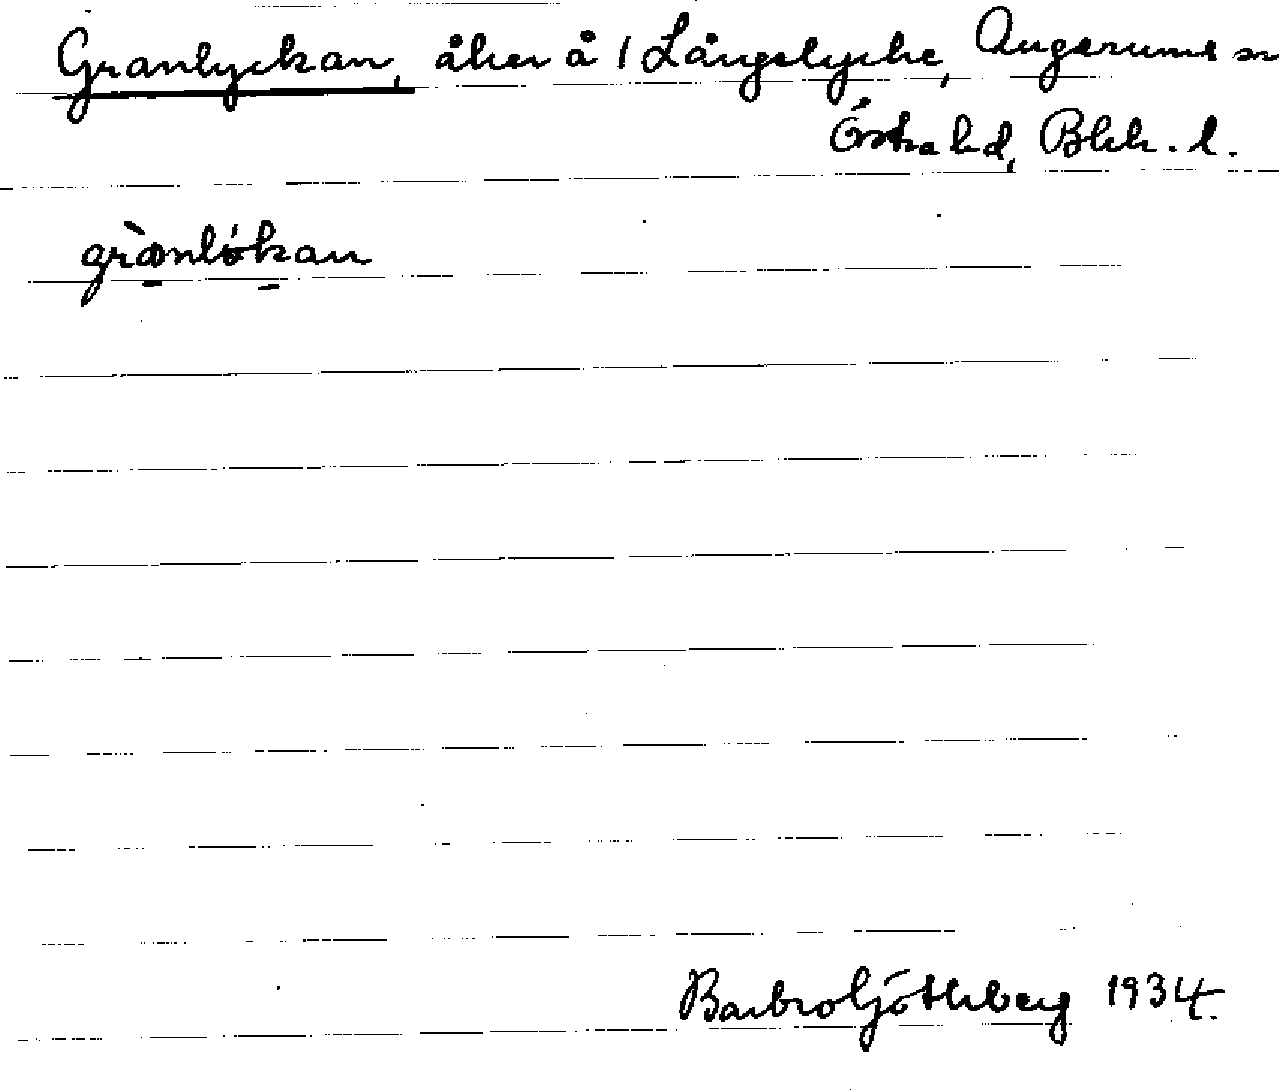 Granlyckan, åker å 1 Långelycke, Augerums sn
Östra hd, Blek. l.
grànlókan
Barbro Götlberg 1934.